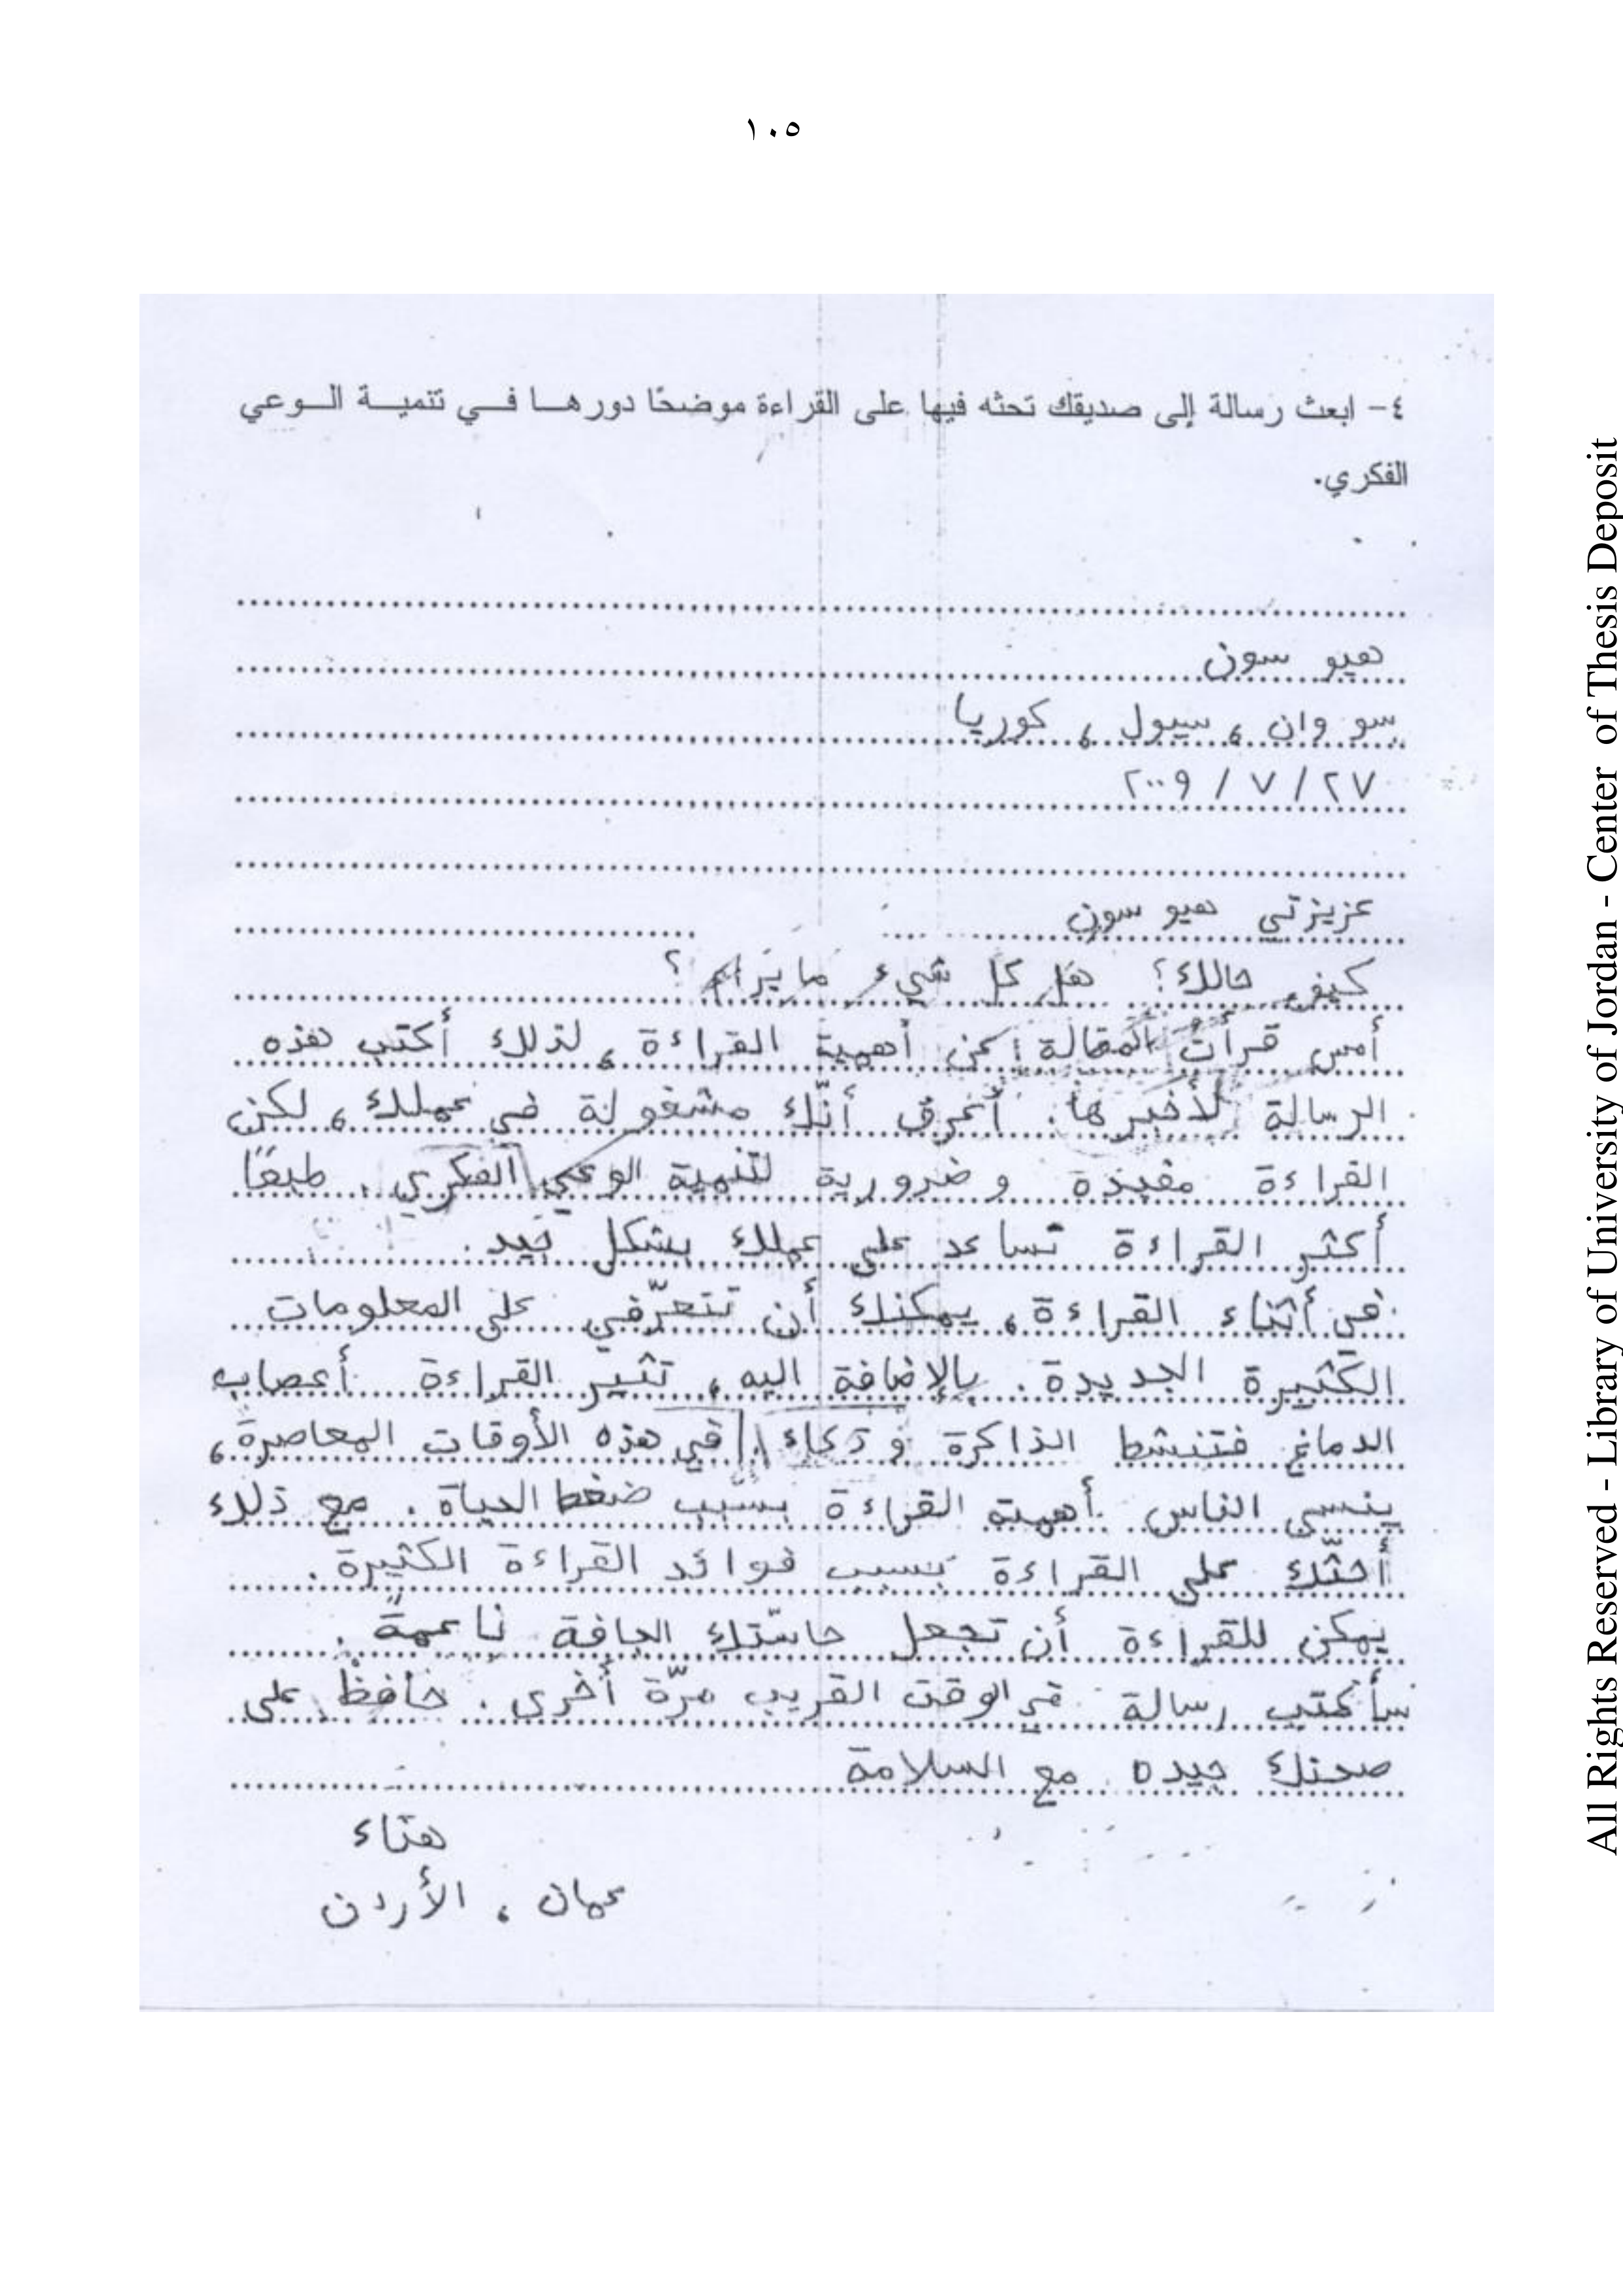 ١٠٥
٤- ابعث رسالة إلى صديقك تحثه فيها على القراءة موضحًا دورها في تنمية الوعي
الفكري.
هيو سون
سو وان ، سيول ، كوريا
٢٧ / ٧ / ٢٠٠٩
عزيزتي هيو سون
كيف حالك؟ هل كل شيء ما يرام؟
أمس قرأتُ المقالة عن أهمية القراءة ، لذلك أكتب هذه
الرسالة لأخبرها. أعرق أنّك مشغولة في عملك ، لكن
القراءة مفيذة و ضرورية لتنمية الوعي الفكري. طبعًا
أكثر القراءة تساعد على عملك بشكل جيد.
في أثناء القراءة ، يمكنك أن تتعرّفي على المعلومات
الكثيرة الجديدة. بالإضافة اليه ، تثير القراءة أعصاب
الدماغ فتنشط الذاكرة و ذكاء. في هذه الأوقات المعاصرة ،
ينسى الناس أهمية القراءة بسبب ضغط الحياة. مع ذلك
أحثّك على القراءة بسبب فوائد القراءة الكثيرة.
يمكن للقراءة أن تجعل حاسّتك الجافة ناعمةً.
سأكتب رسالة في الوقت القريب مرّة أخرى. حافظْ على
صحتك جيده مع السلامة
هناء
عمان ، الأردن
All Rights Reserved - Library of University of Jordan - Center of Thesis Deposit